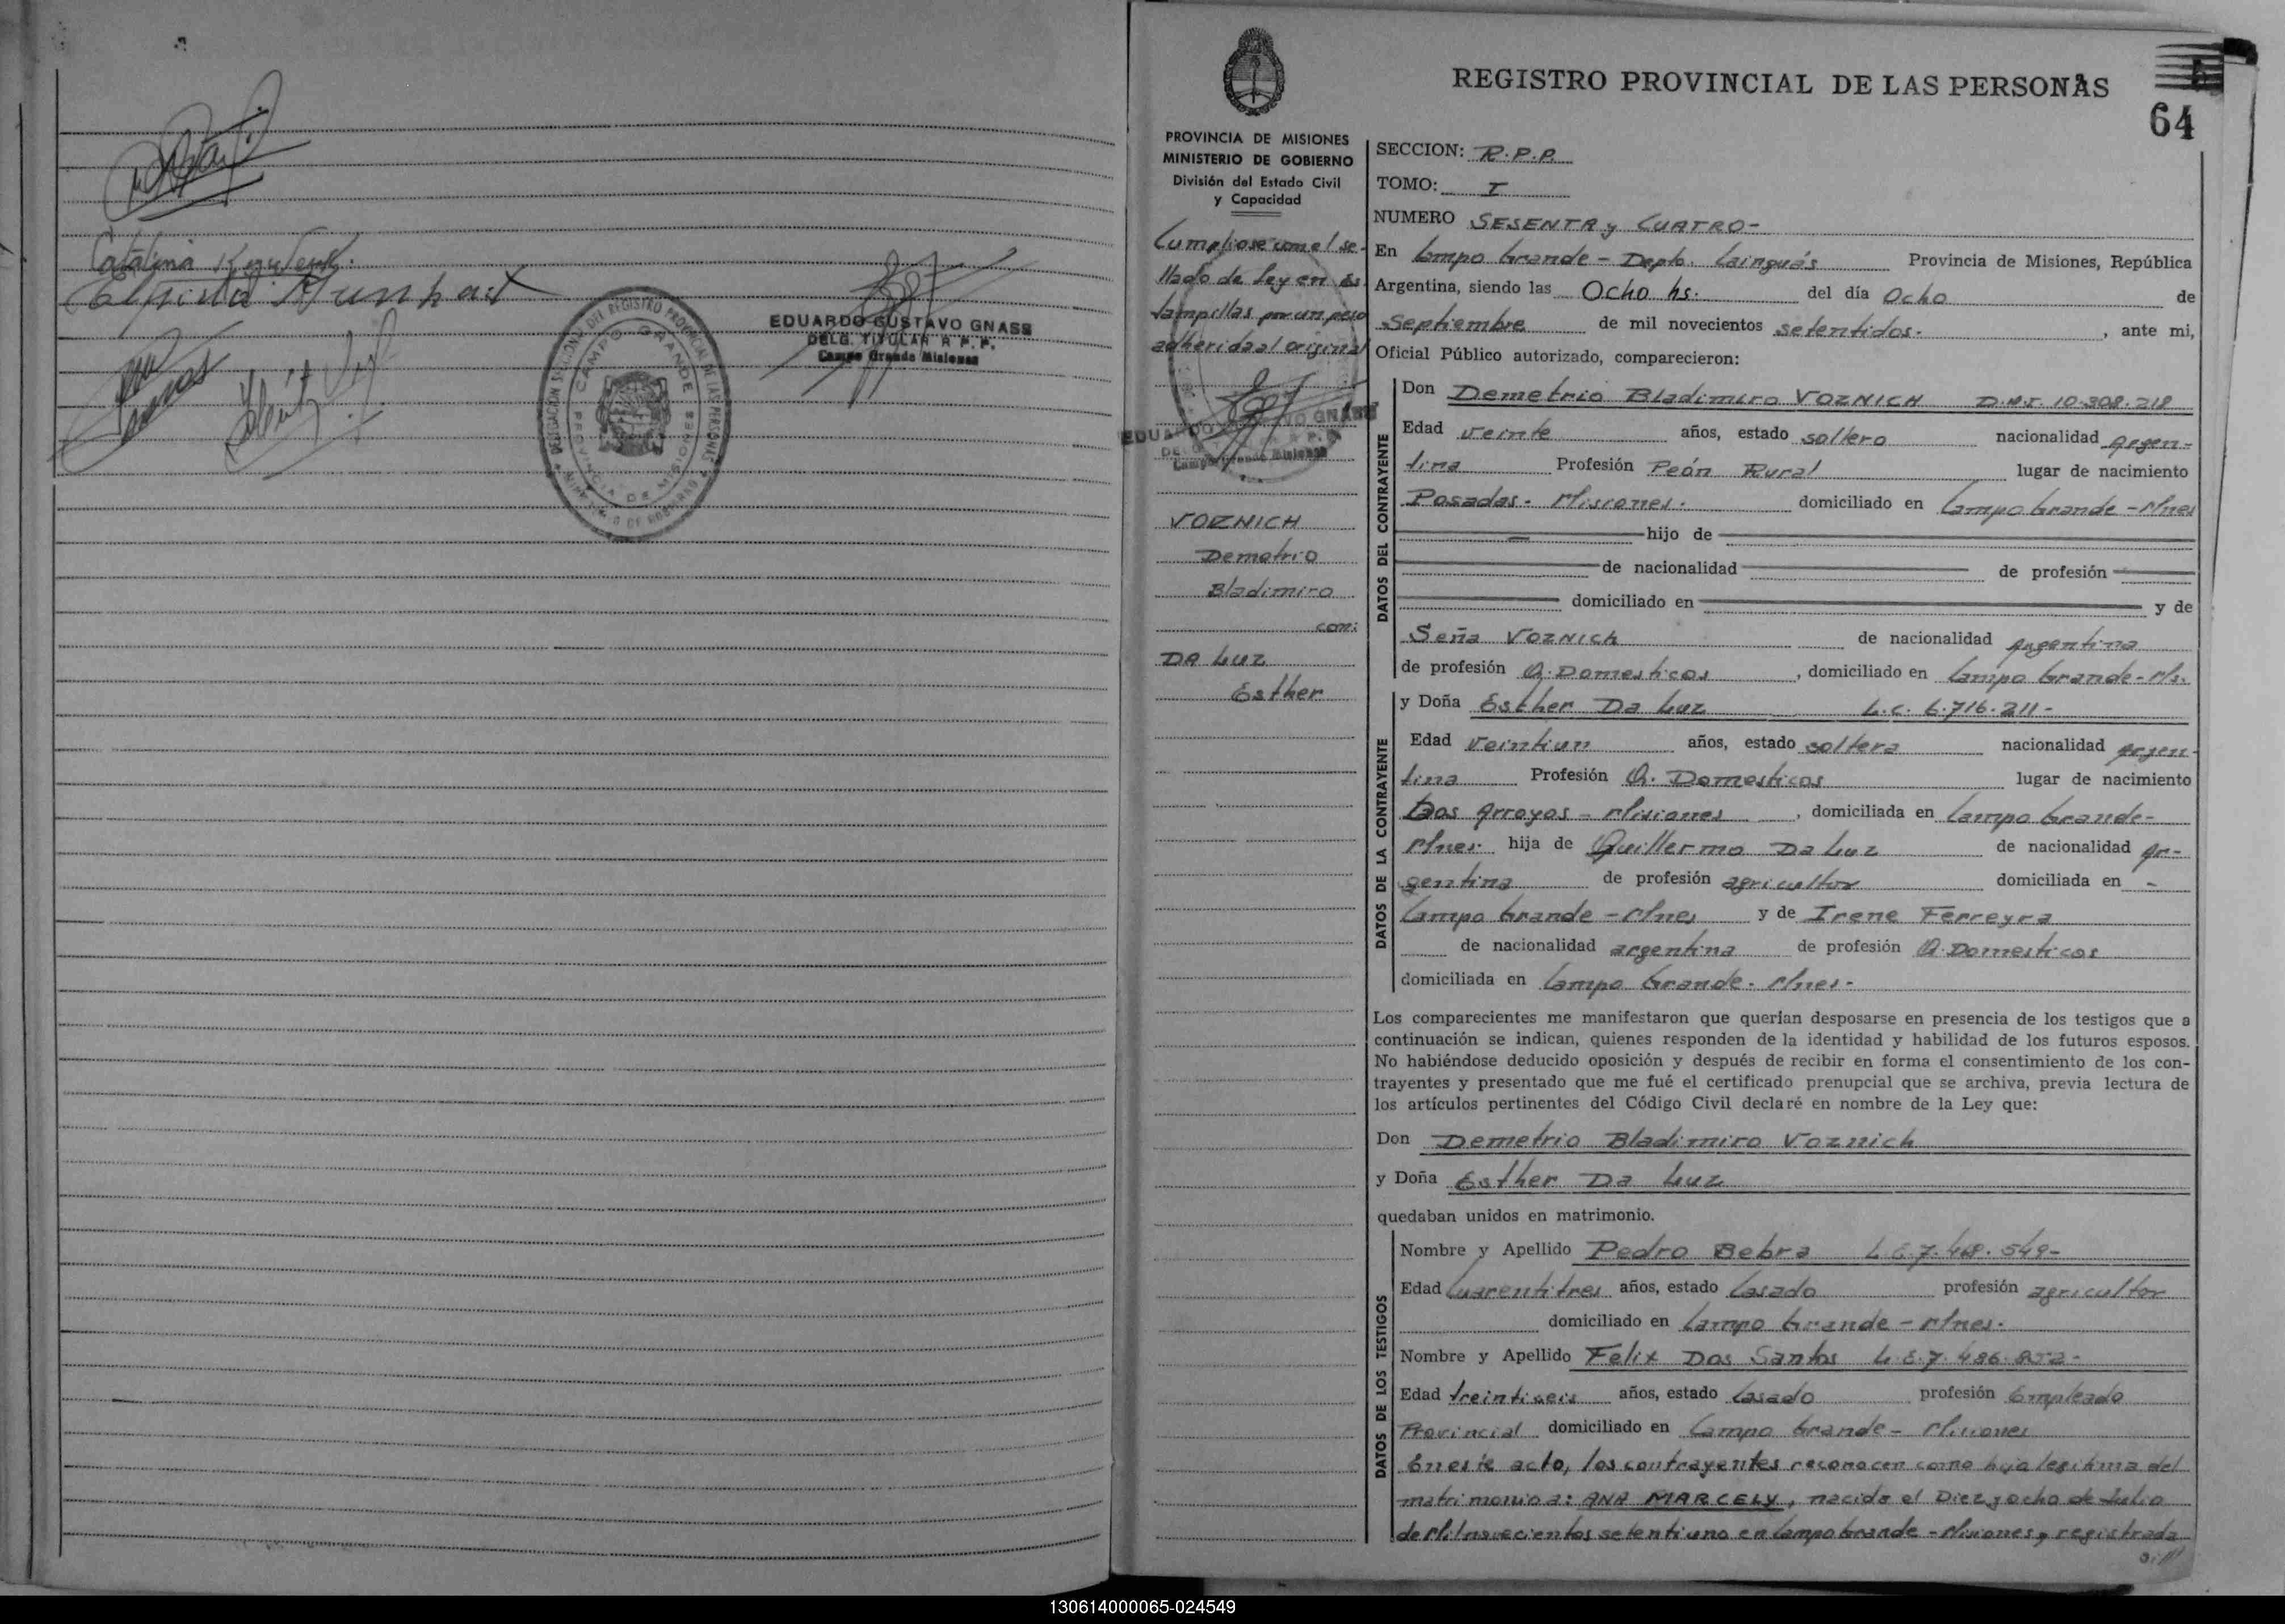 Catalina
EDUARDO GUSTAVO GNASS
DELG. TITULAR R. P. P.
Campo Grande Misiones
DELEGACION SECCIONAL DEL REGISTRO PROVINCIAL DE LAS PERSONAS
CAMPO GRANDE
PROVINCIA DE MISIONES
MINISTERIO DE GOBIERNO
REGISTRO PROVINCIAL DE LAS PERSONAS
64
PROVINCIA DE MISIONES
MINISTERIO DE GOBIERNO
División del Estado Civil
y Capacidad
Cumpliose con el se-
llado de Ley en es-
tampillas por un peso
adherida al original
EDUARDO GUSTAVO GNASS
Campo Grande Misiones
VOZNICH
Demetrio
Bladimiro
con:
DA LUZ
Esther
SECCION: R.P.P.
TOMO: I
NUMERO SESENTA y CUATRO-
En Campo Grande - Depto. Cainguás Provincia de Misiones, República
Argentina, siendo las Ocho hs. del día Ocho de
Septiembre de mil novecientos setentidos. , ante mi,
Oficial Público autorizado, comparecieron:
DATOS DEL CONTRAYENTE
Don Demetrio Bladimiro VOZNICH D.N.I. 10.308.218
Edad veinte años, estado soltero nacionalidad Argen-
tina Profesión Peón Rural lugar de nacimiento
Posadas - Misiones. domiciliado en Campo Grande - Mnes
hijo de
de nacionalidad de profesión
domiciliado en y de
Seña VOZNICH de nacionalidad Argentina
de profesión Q. Domesticos , domiciliado en Campo Grande - Ms.
DATOS DE LA CONTRAYENTE
y Doña Esther Da Luz L.C. 6.716.211-
Edad Veintiun años, estado soltera nacionalidad argen-
tina Profesión Q. Domesticos lugar de nacimiento
Dos Arroyos - Misiones , domiciliada en Campo Grande-
Mnes. hija de Guillermo Da Luz de nacionalidad Ar-
gentina de profesión agricultor domiciliada en -
Campo Grande - Mnes y de Irene Ferreyra
de nacionalidad argentina de profesión Q. Domesticos
domiciliada en Campo Grande - Mnes-
Los comparecientes me manifestaron que querían desposarse en presencia de los testigos que a
continuación se indican, quienes responden de la identidad y habilidad de los futuros esposos.
No habiéndose deducido oposición y después de recibir en forma el consentimiento de los con-
trayentes y presentado que me fué el certificado prenupcial que se archiva, previa lectura de
los artículos pertinentes del Código Civil declaré en nombre de la Ley que:
Don Demetrio Bladimiro Voznich
y Doña Esther Da Luz
quedaban unidos en matrimonio.
DATOS DE LOS TESTIGOS
Nombre y Apellido Pedro Bebra L.E. 7.468.549-
Edad Cuarentitres años, estado Casado profesión agricultor
domiciliado en Campo Grande - Mnes.
Nombre y Apellido Felix Dos Santos L.E. 7.486.852-
Edad treintiseis años, estado Casado profesión Empleado
Provincial domiciliado en Campo Grande - Misiones
En este acto, los contrayentes reconocen como hija legitima del
matrimonio a: ANA MARCELY, nacida el Diez y ocho de Julio
de Mil novecientos setentiuno en Campo Grande - Misiones y registrada
130614000065-024549